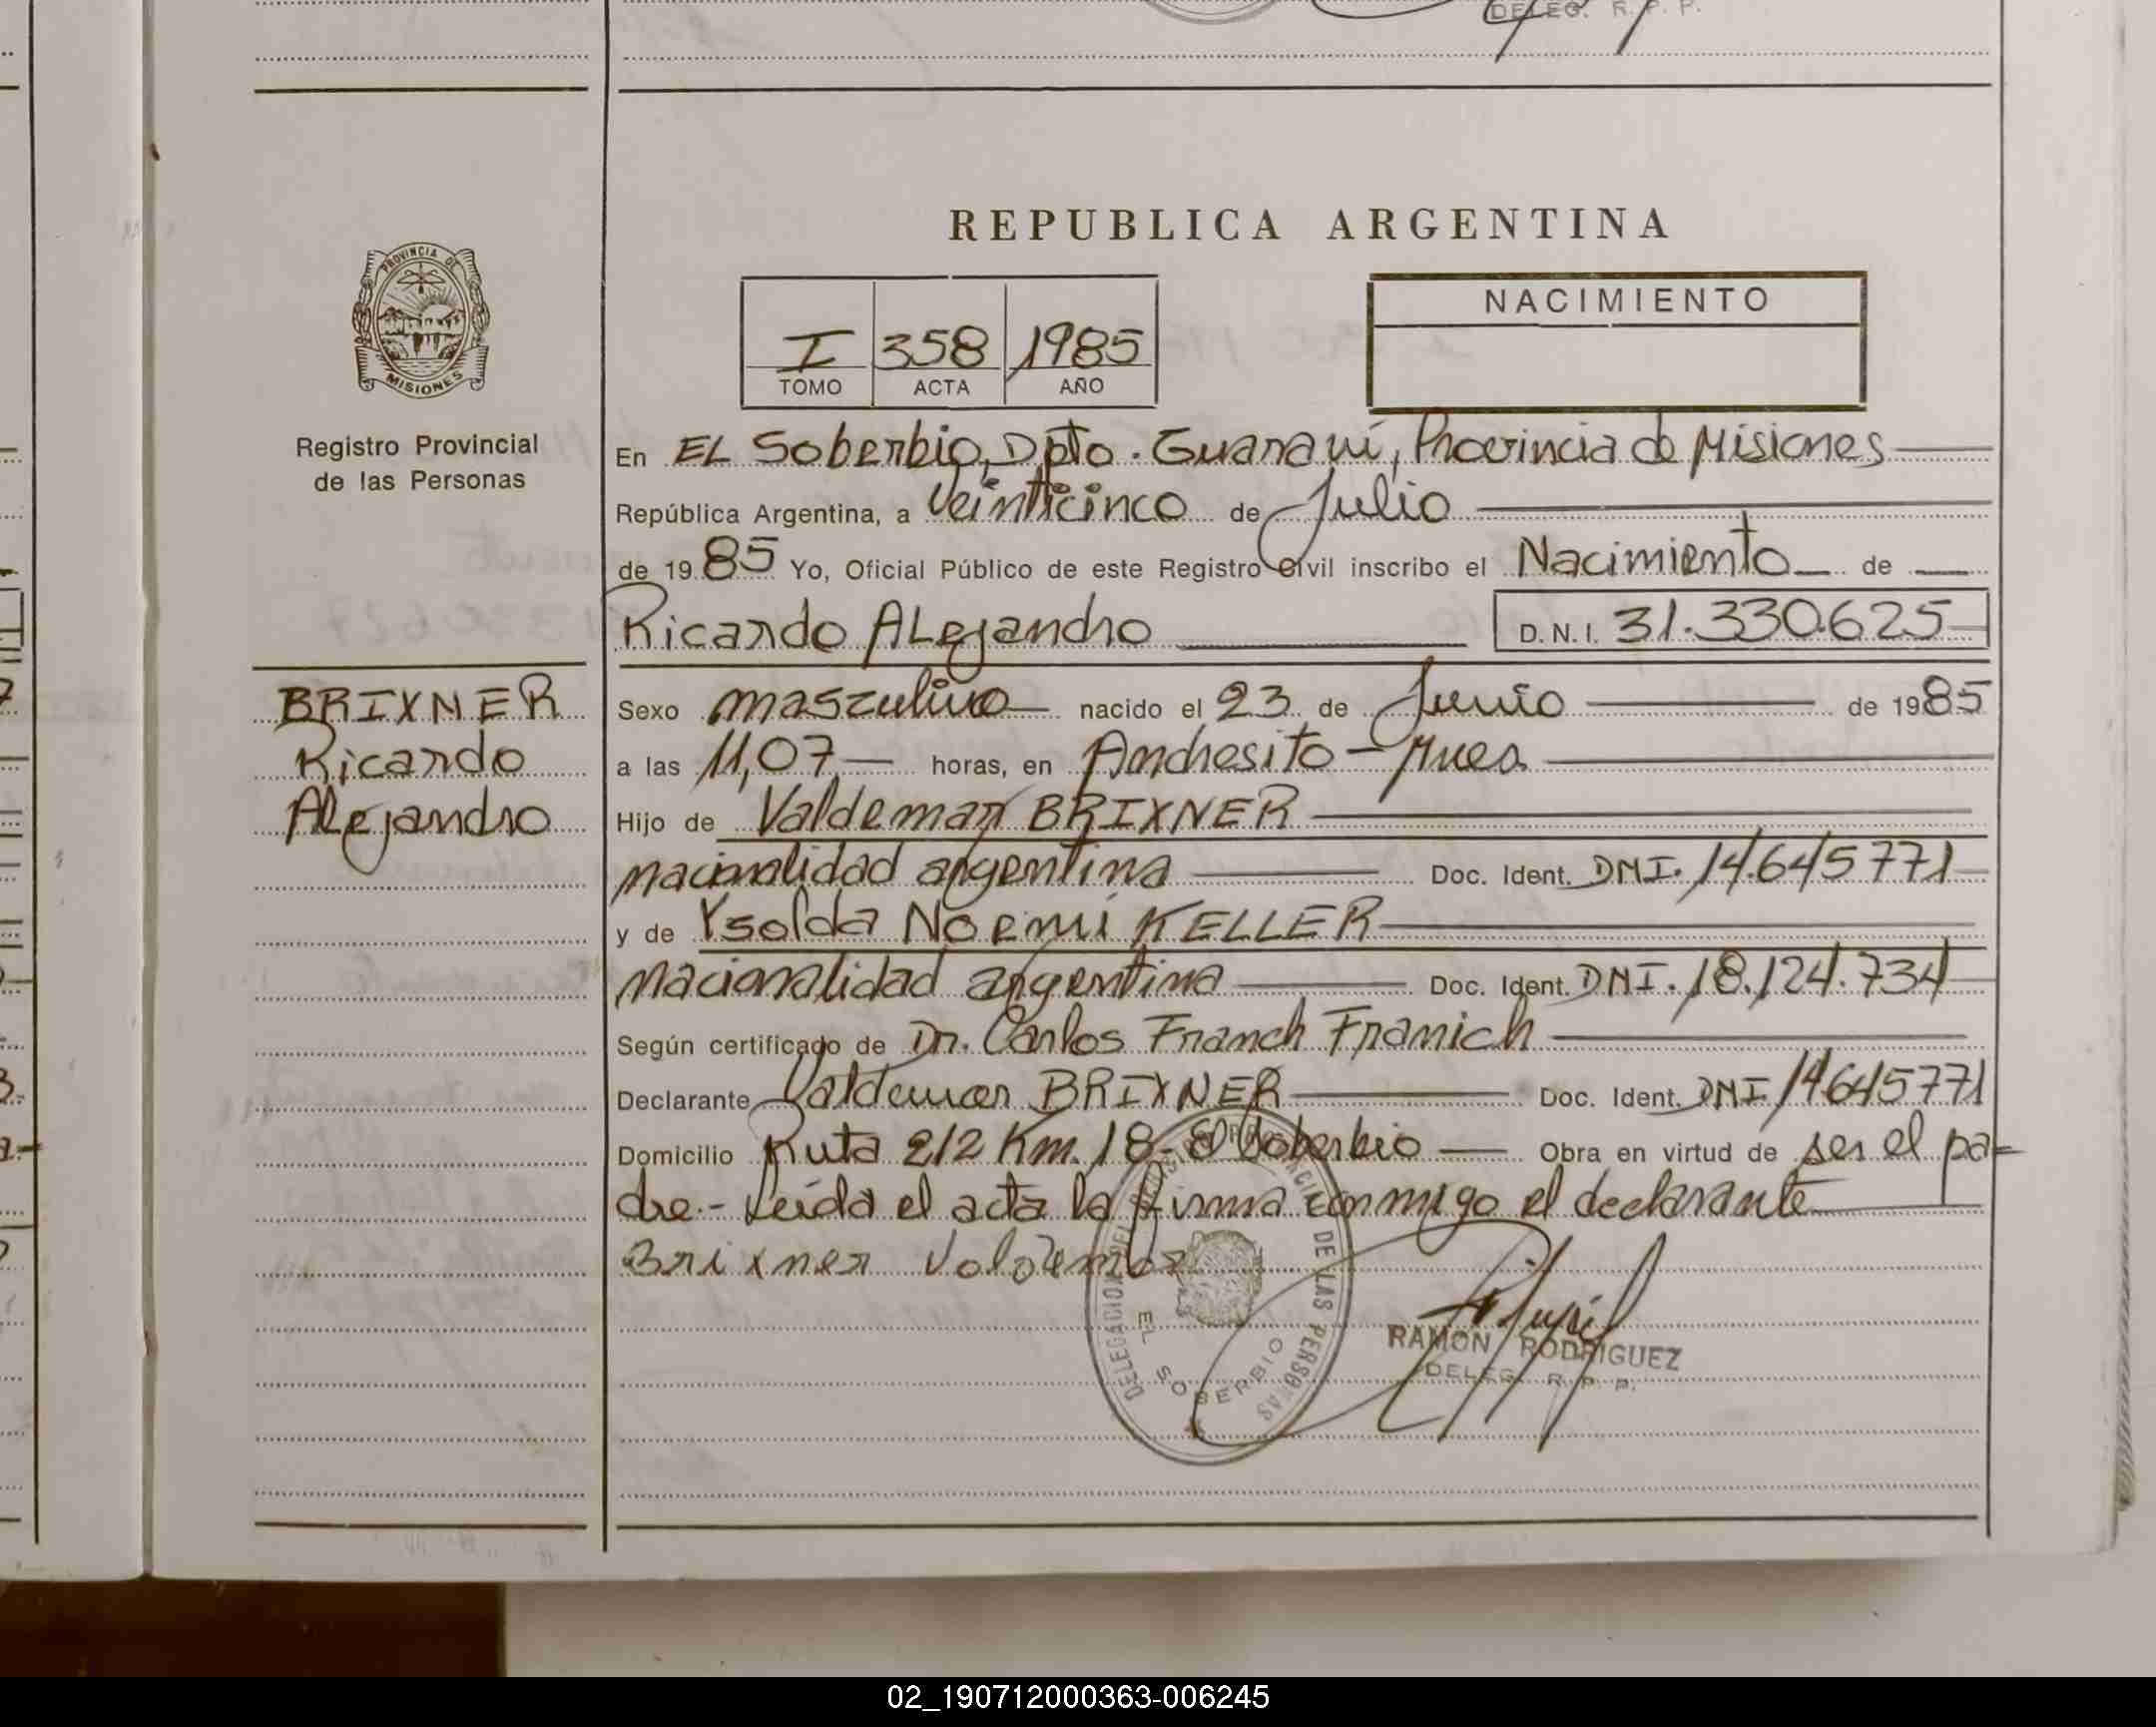 DELEG. R. P. P.
REPUBLICA ARGENTINA
PROVINCIA DE
MISIONES
Registro Provincial
de las Personas
I 358 1985
TOMO ACTA AÑO
NACIMIENTO
En EL Soberbio, Dpto. Guaraní, Provincia de Misiones
República Argentina, a Veinticinco de Julio
de 1985 Yo, Oficial Público de este Registro Civil inscribo el Nacimiento de
Ricardo ALejandro D.N.I. 31.330.625
BRIXNER
Ricardo
ALejandro
Sexo masculino nacido el 23 de Junio de 1985
a las 11,07 horas, en Andresito -
Hijo de Valdemar BRIXNER
nacionalidad argentina Doc. Ident. DNI. 14.645771
y de Ysolda Noemi KELLER
nacionalidad argentina Doc. Ident. DNI. 18.124.734
Según certificado de Dr. Carlos Franch Framich
Declarante Valdemar BRIXNER Doc. Ident. DNI 14645771
Domicilio Ruta 212 Km. 18 - El Soberbio Obra en virtud de ser el pa-
dre.- Leída el acta la firma conmigo el declarante
Brixner Valdemar
DELEGACION DE LAS PERSONAS
EL SOBERBIO
RAMON RODRIGUEZ
DELEG. R. P. P.
02_190712000363-006245